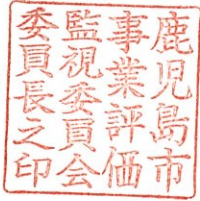 鹿児島市
事業評価
監視委員会
委員長之印